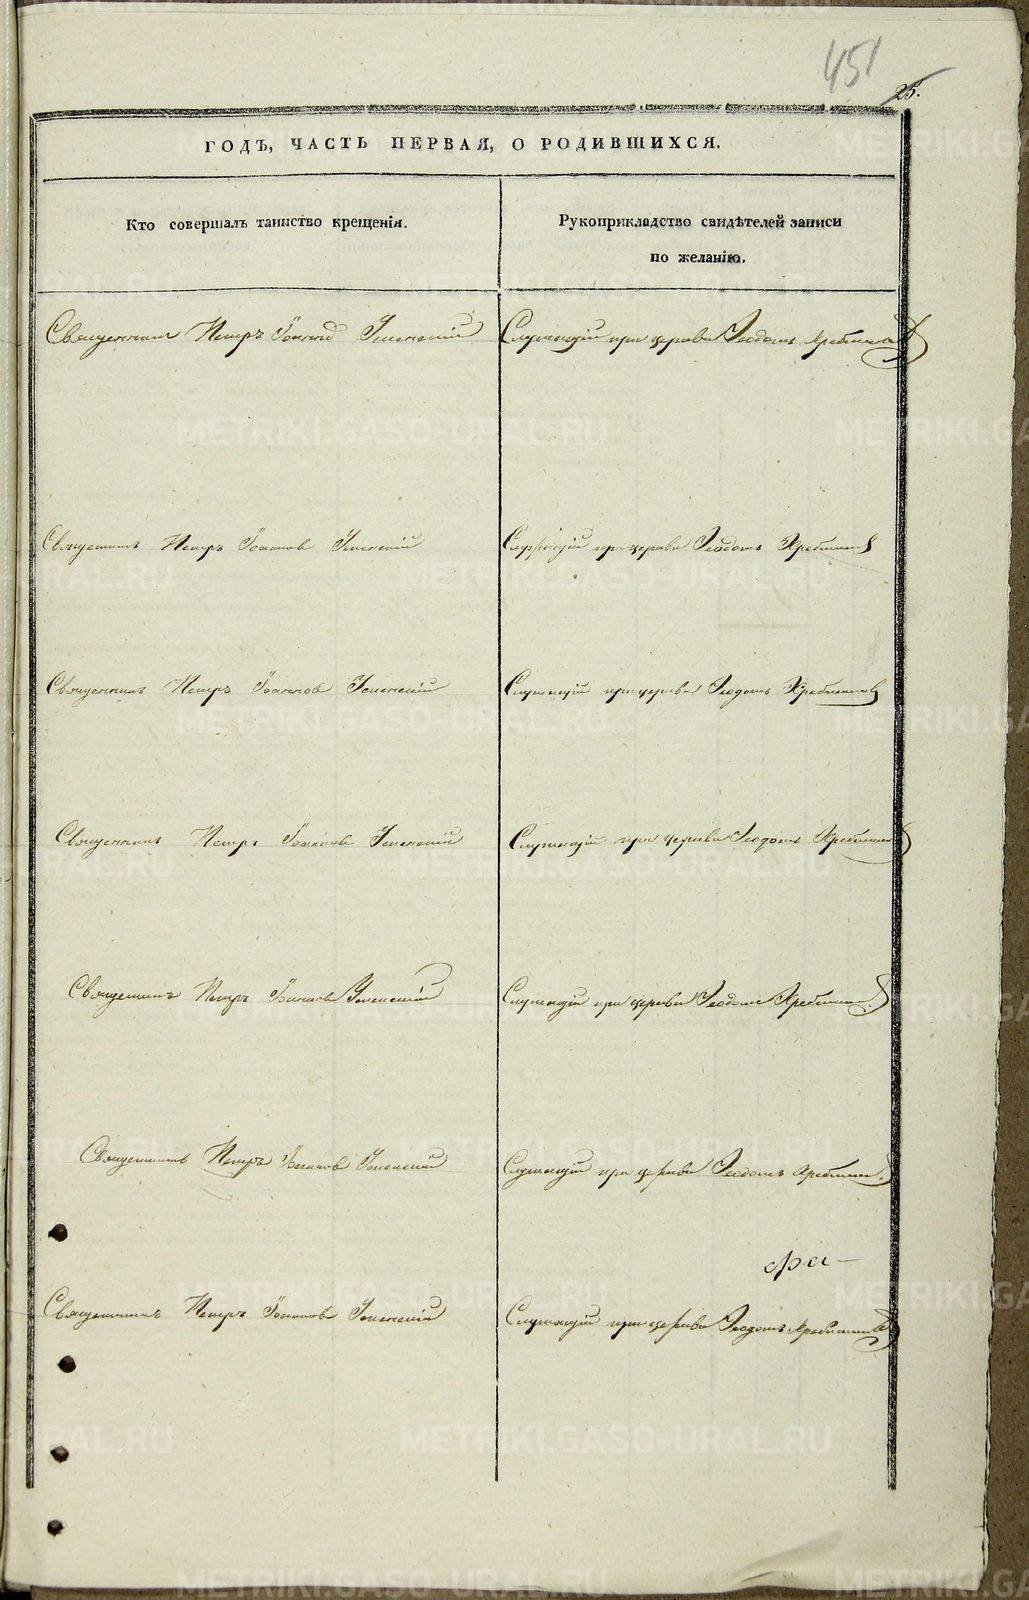 451
25.
ГОДЪ, ЧАСТЬ ПЕРВАЯ, О РОДИВШИХСЯ.
Кто совершалъ таинство крещенія.
Рукоприкладство свидѣтелей записи
по желанію.
Священникъ Петръ Іоанновъ Успенскій
Служащій при церкви Ѳеодотъ
Священникъ Петръ Іоанновъ Успенскій
Служащій при церкви Ѳеодотъ
Священникъ Петръ Іоанновъ Успенскій
Служащій при церкви Ѳеодотъ
Священникъ Петръ Іоанновъ Успенскій
Служащій при церкви Ѳеодотъ
Священникъ Петръ Іоанновъ Успенскій
Служащій при церкви Ѳеодотъ
Священникъ Петръ Іоанновъ Успенскій
Служащій при церкви Ѳеодотъ
Священникъ Петръ Іоанновъ Успенскій
Служащій при церкви Ѳеодотъ
METRIKI.GASO-URAL.RU